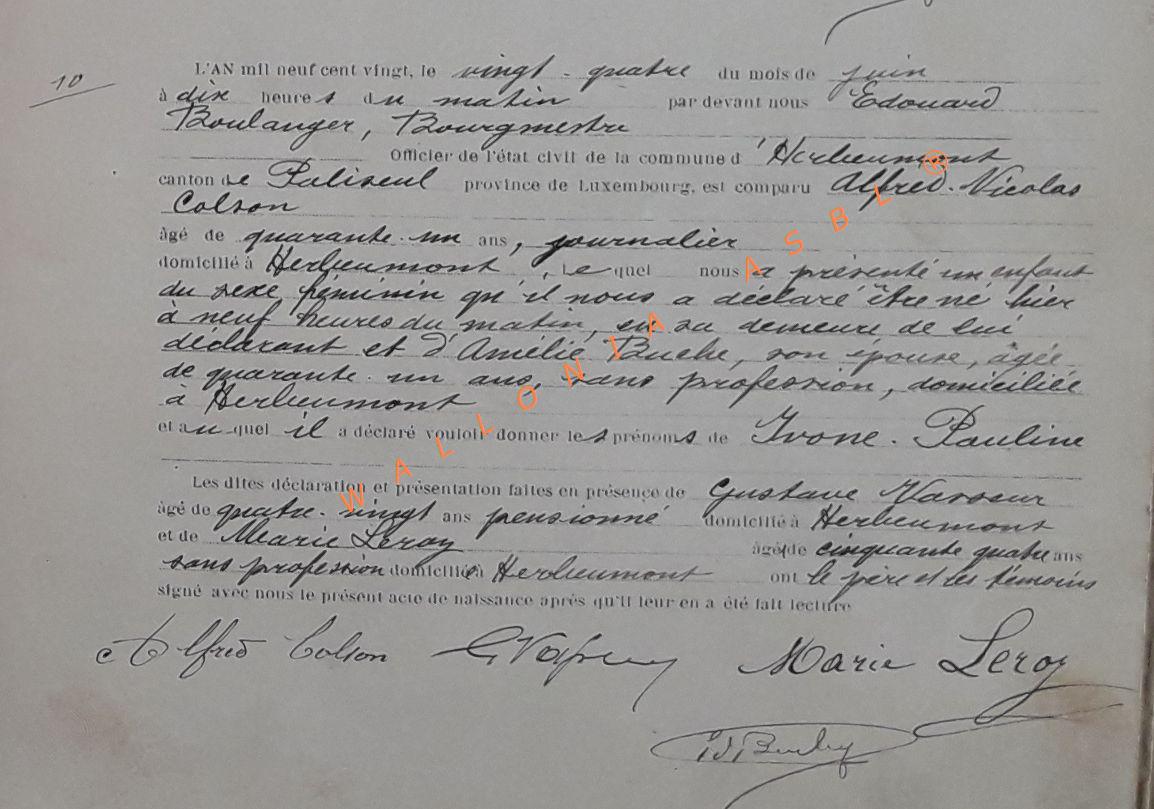 10
L'AN mil neuf cent vingt, le vingt-quatre du mois de juin
à dix heures du matin par devant nous Edouard
Boulanger, Bourgmestre
Officier de l'état civil de la commune d'Herbeumont
canton de Paliseul province de Luxembourg, est comparu Alfred-Nicolas
Colson
âgé de quarante-un ans, journalier
domicilié à Herbeumont, lequel nous a présenté un enfant
du sexe féminin qu'il nous a déclaré être né hier
à neuf heures du matin, en sa demeure de lui
déclarant et d'Amélie Buche, son épouse, âgée
de quarante-un ans, sans profession, domiciliée
à Herbeumont
et auquel il a déclaré vouloir donner les prénoms de Ivone-Pauline
Les dites déclaration et présentation faites en présence de Gustave Vasseur
âgé de quatre-vingt ans pensionné domicilié à Herbeumont
et de Marie Leroy âgé de cinquante quatre ans
sans profession domicilié à Herbeumont ont le père et les témoins
signé avec nous le présent acte de naissance après qu'il leur en a été fait lecture
Alfred Colson G Vasseur Marie Leroy
WALLONIA ASBL ®